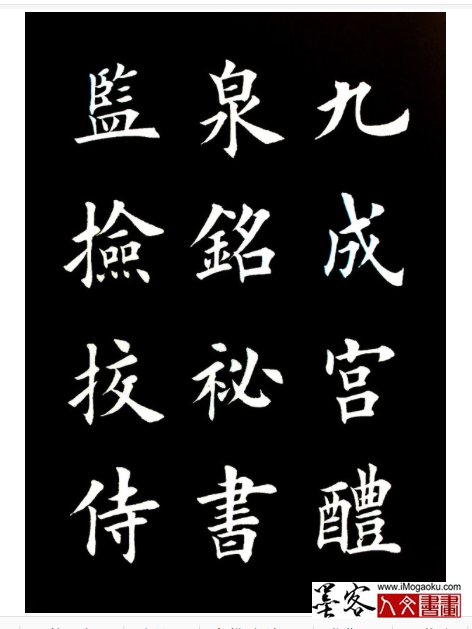 九成宫醴
泉銘祕書
監撿挍侍
墨客
www.iMogaoku.com
人文書畫